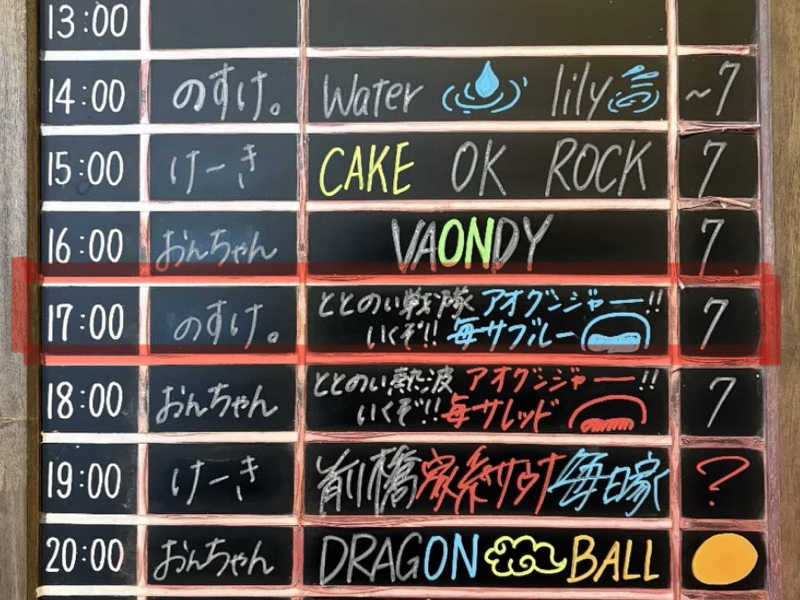 13:00
14:00 のすけ。 Water lily ~7
15:00 けーき CAKE OK ROCK 7
16:00 おんちゃん VAONDY 7
17:00 のすけ。 ととのい戦隊 アオグンジャー!! 7
いくぞ!! 毎サブルー
18:00 おんちゃん ととのい熱波 アオグンジャー!! 7
いくぞ!! 毎サレッド
19:00 けーき 前橋家系サウナ毎日家 ?
20:00 おんちゃん DRAGON BALL